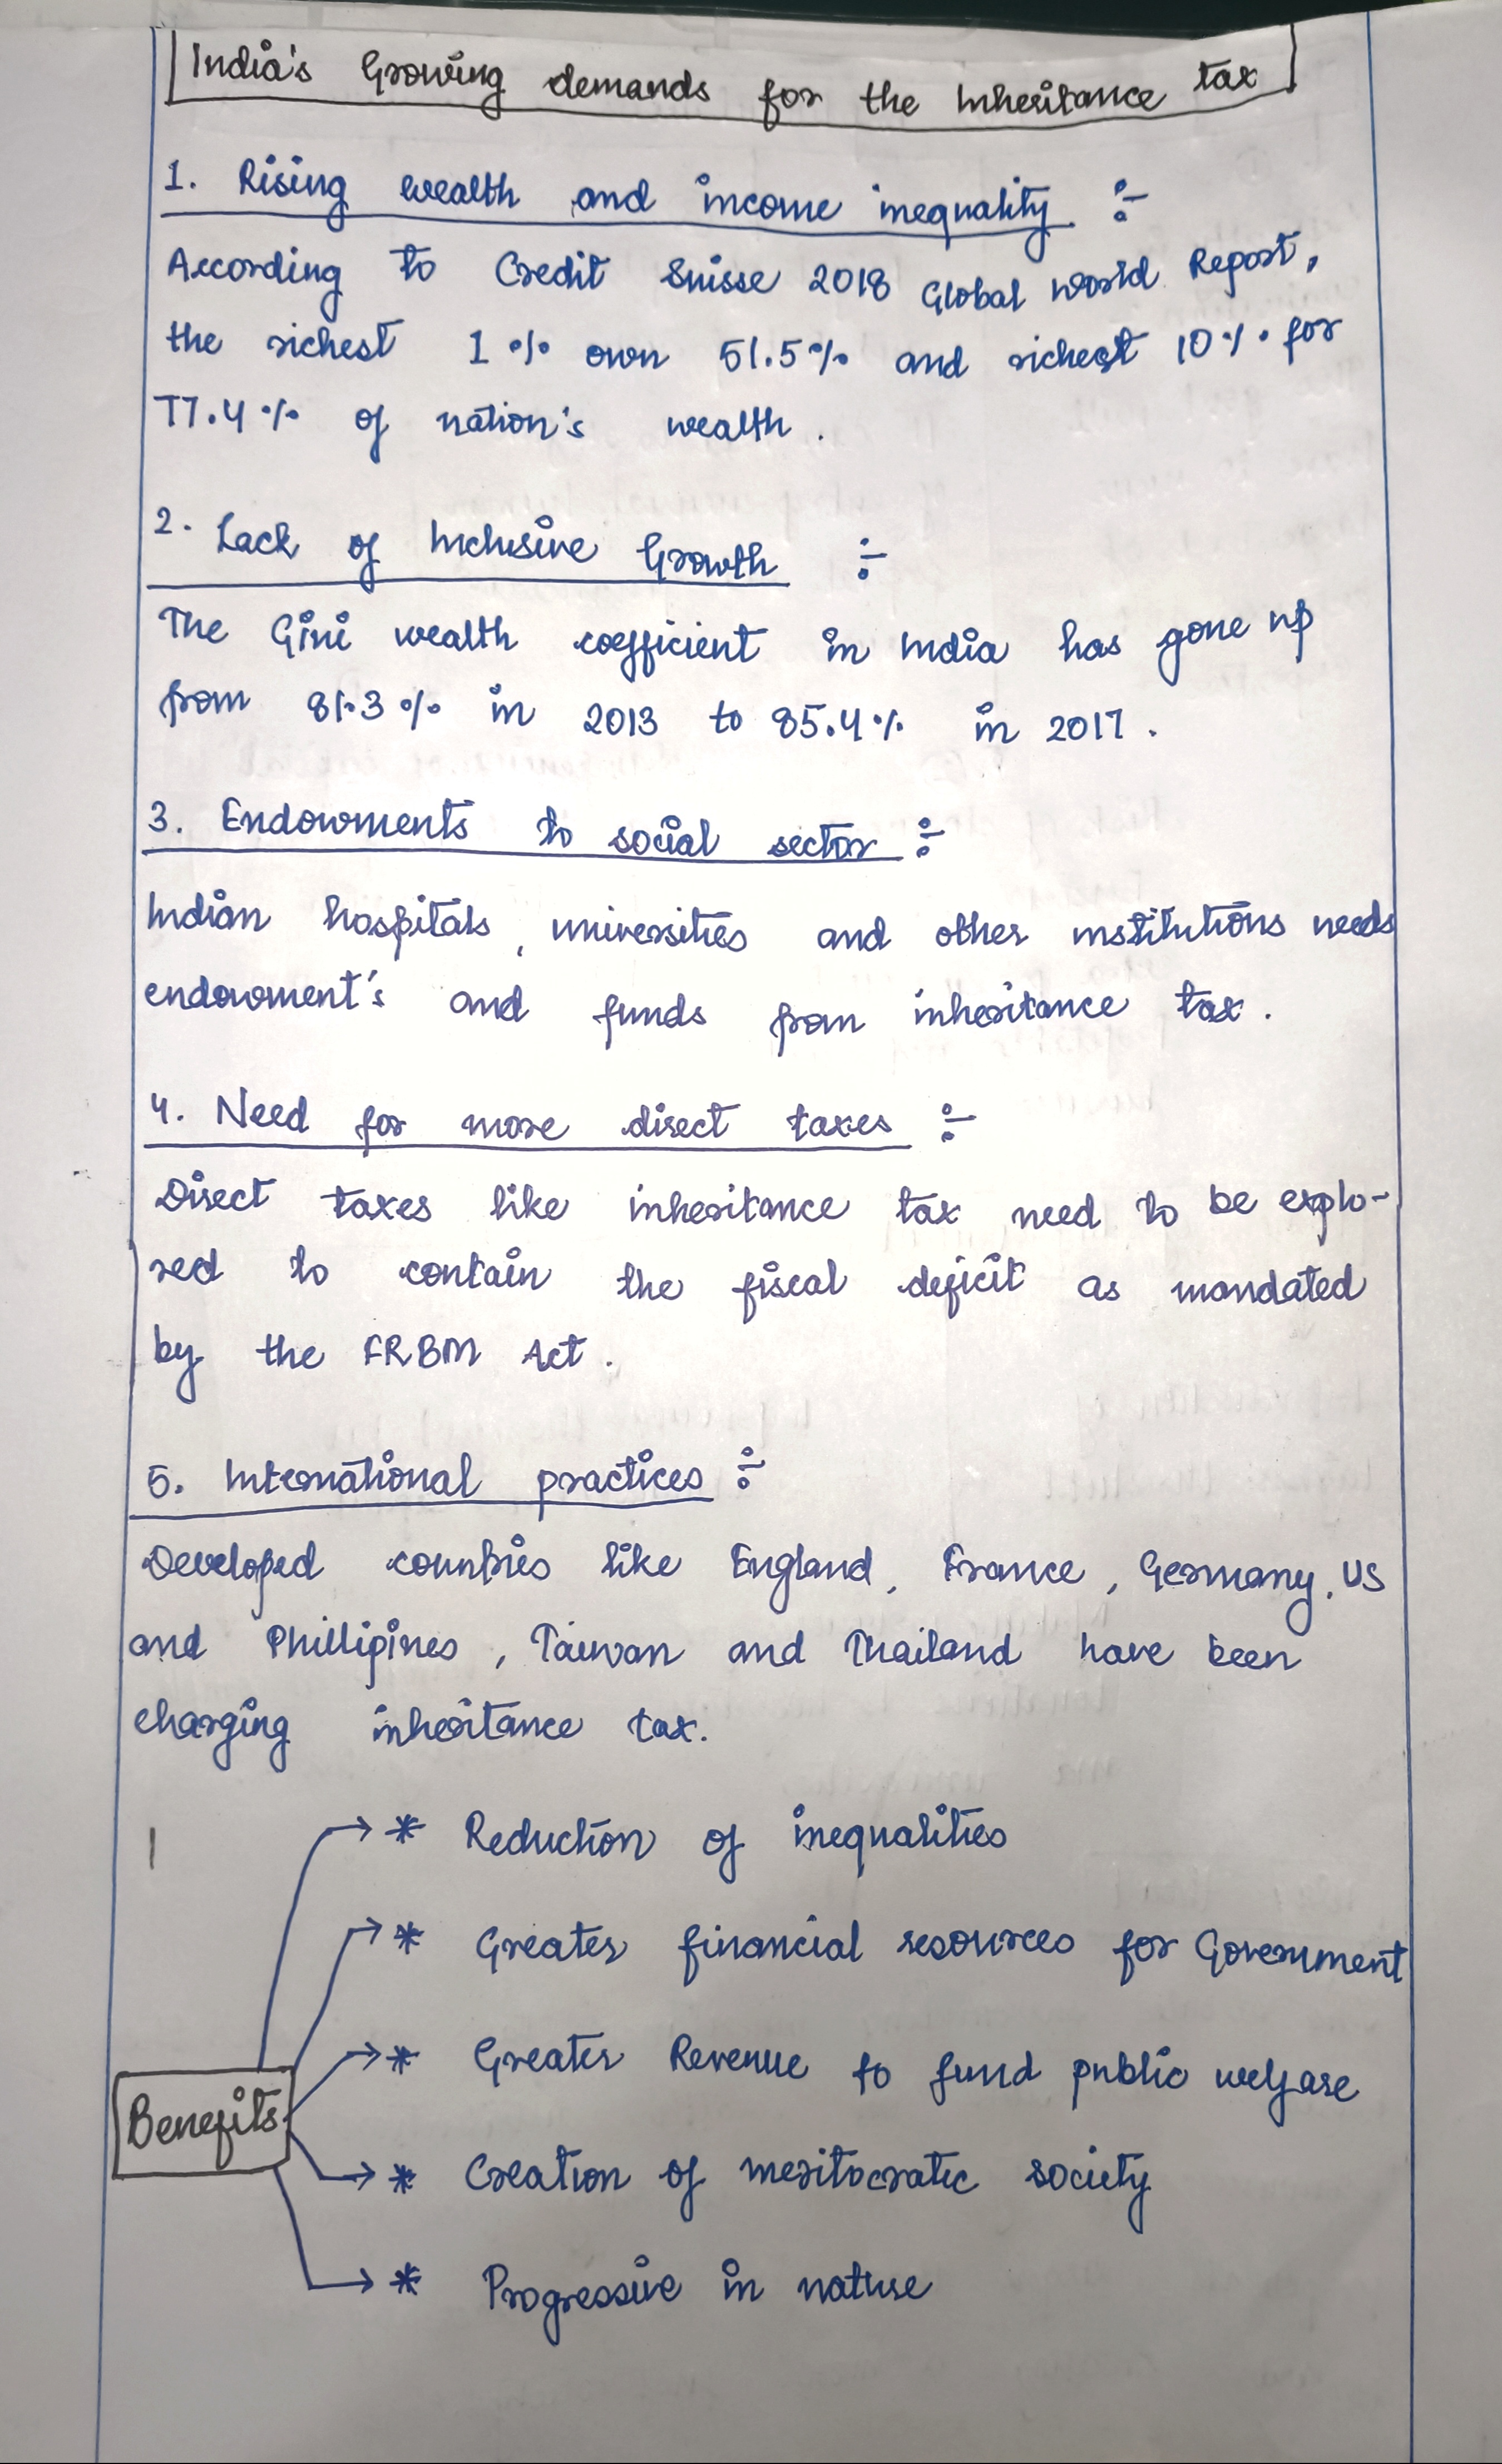 India's Growing demands for the Inheritance tax
1. Rising wealth and income inequality :-
According to Credit Suisse 2018 Global World Report,
the richest 1% own 51.5% and richest 10% for
77.4% of nation's wealth.
2. Lack of Inclusive Growth :-
The Gini wealth coefficient in India has gone up
from 81.3% in 2013 to 85.4% in 2017.
3. Endowments to social sector :-
Indian hospitals, universities and other institutions needs
endowment's and funds from inheritance tax.
4. Need for more direct taxes :-
Direct taxes like inheritance tax need to be explo-
red to contain the fiscal deficit as mandated
by the FRBM Act.
5. International practices :-
Developed countries like England, France, Germany, US
and Phillipines, Taiwan and Thailand have been
charging inheritance tax.
Benefits
* Reduction of inequalities
* Greater financial resources for Government
* Greater Revenue to fund public welfare
* Creation of meritocratic society
* Progressive in nature